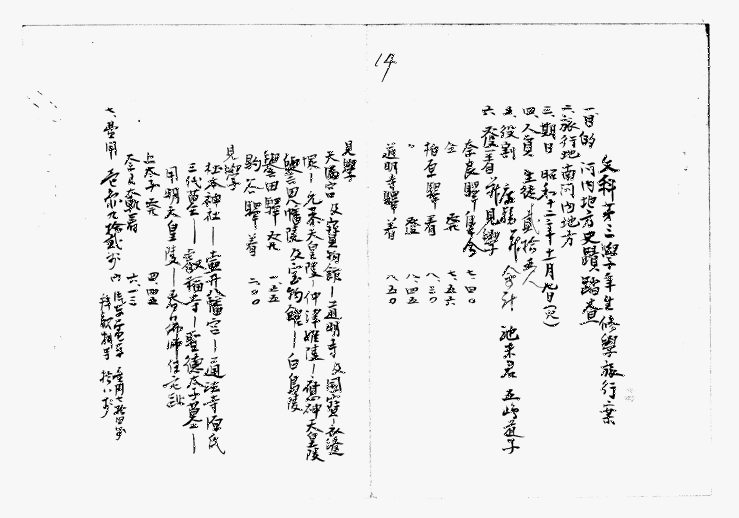 14
文科第三學年生修學旅行案
一、目的 河内地方史蹟踏査
二、旅行地 南河内地方
三、期日 昭和十二年十一月九日(火)
四、人員 生徒貳拾五人
五、役割 庶務部 會計 池末君 五嶋道子
六、發着並見學
奈良驛集合 七、四〇
仝 發 七、五六
柏原驛 着 八、三〇
〃 發 八、四五
道明寺驛着 八、五〇
見學
天滿宮及寶物館―道明寺及國寶―衣縫
塚―允恭天皇陵―仲津姫陵―應神天皇陵
譽田八幡陵及宝物館―白鳥陵
譽田驛發 一、五五
駒谷驛着 二、〇〇
見學
杜本神社―壷井八幡宮―通法寺源氏
三代墓―叡福寺―聖德太子墓―
用明天皇陵―
上太子發 四、四五
奈良驛着 六、一三
七、費用 壱円九拾貳戋 内 汽車電車